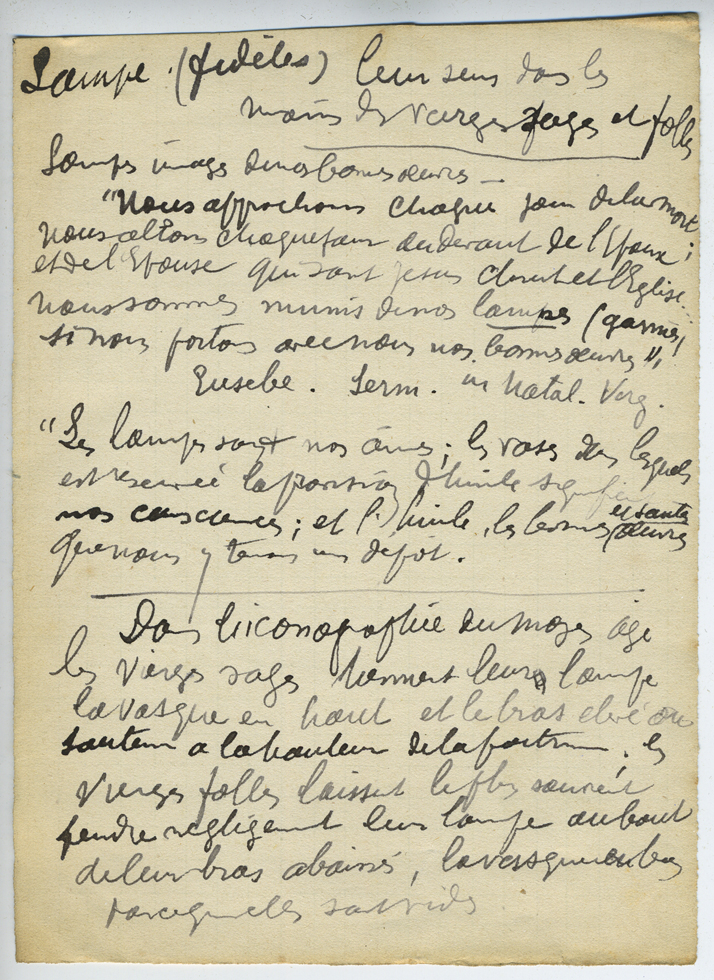 Lampe (fidèles) leur sens dans les
mains des vierges sages et folles
Lampes image de nos bonnes œuvres —
"Nous approchons chaque jour de la mort
nous allons chaque jour au devant de l'Epoux ;
et de l'Epouse qui sont Jesus Christ et l'Eglise
nous sommes munis de nos lampes (garnies)
si nous portons avec nous nos bonnes œuvres",
Eusebe. Serm. in Natal. Virg.
"Les lampes sont nos âmes ; les vases dans lesquels
est versée la portion d'huile signifient
nos consciences ; et l'huile, les bonnes et saintes œuvres
que nous y tenons en dépôt.
Dans l'iconographie du moyen âge
les Vierges sages tiennent leurs lampe
la vasque en haut et le bras elevé ou
soutenu a la hauteur de la poitrine ; les
Vierges folles laissent le plus souvent
pendre négligemment leur lampe au bout
de leur bras abaissé, la vasque en bas
parce qu'elles sont vides